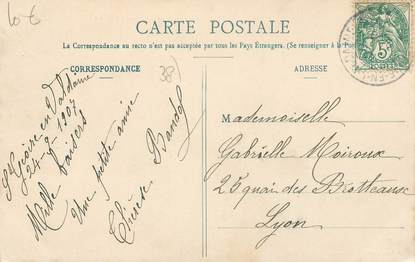 10 €
CARTE POSTALE
La Correspondance au recto n'est pas acceptée par tous les Pays Etrangers. (Se renseigner à la Po
CORRESPONDANCE
38)
ADRESSE
St Geoire en Valdaine
24-9-1907
Mille baisers
Une petite amie
Thérèse Bandel
Mademoiselle
Gabrielle Moiroux
25 quai des Brotteaux
Lyon
5